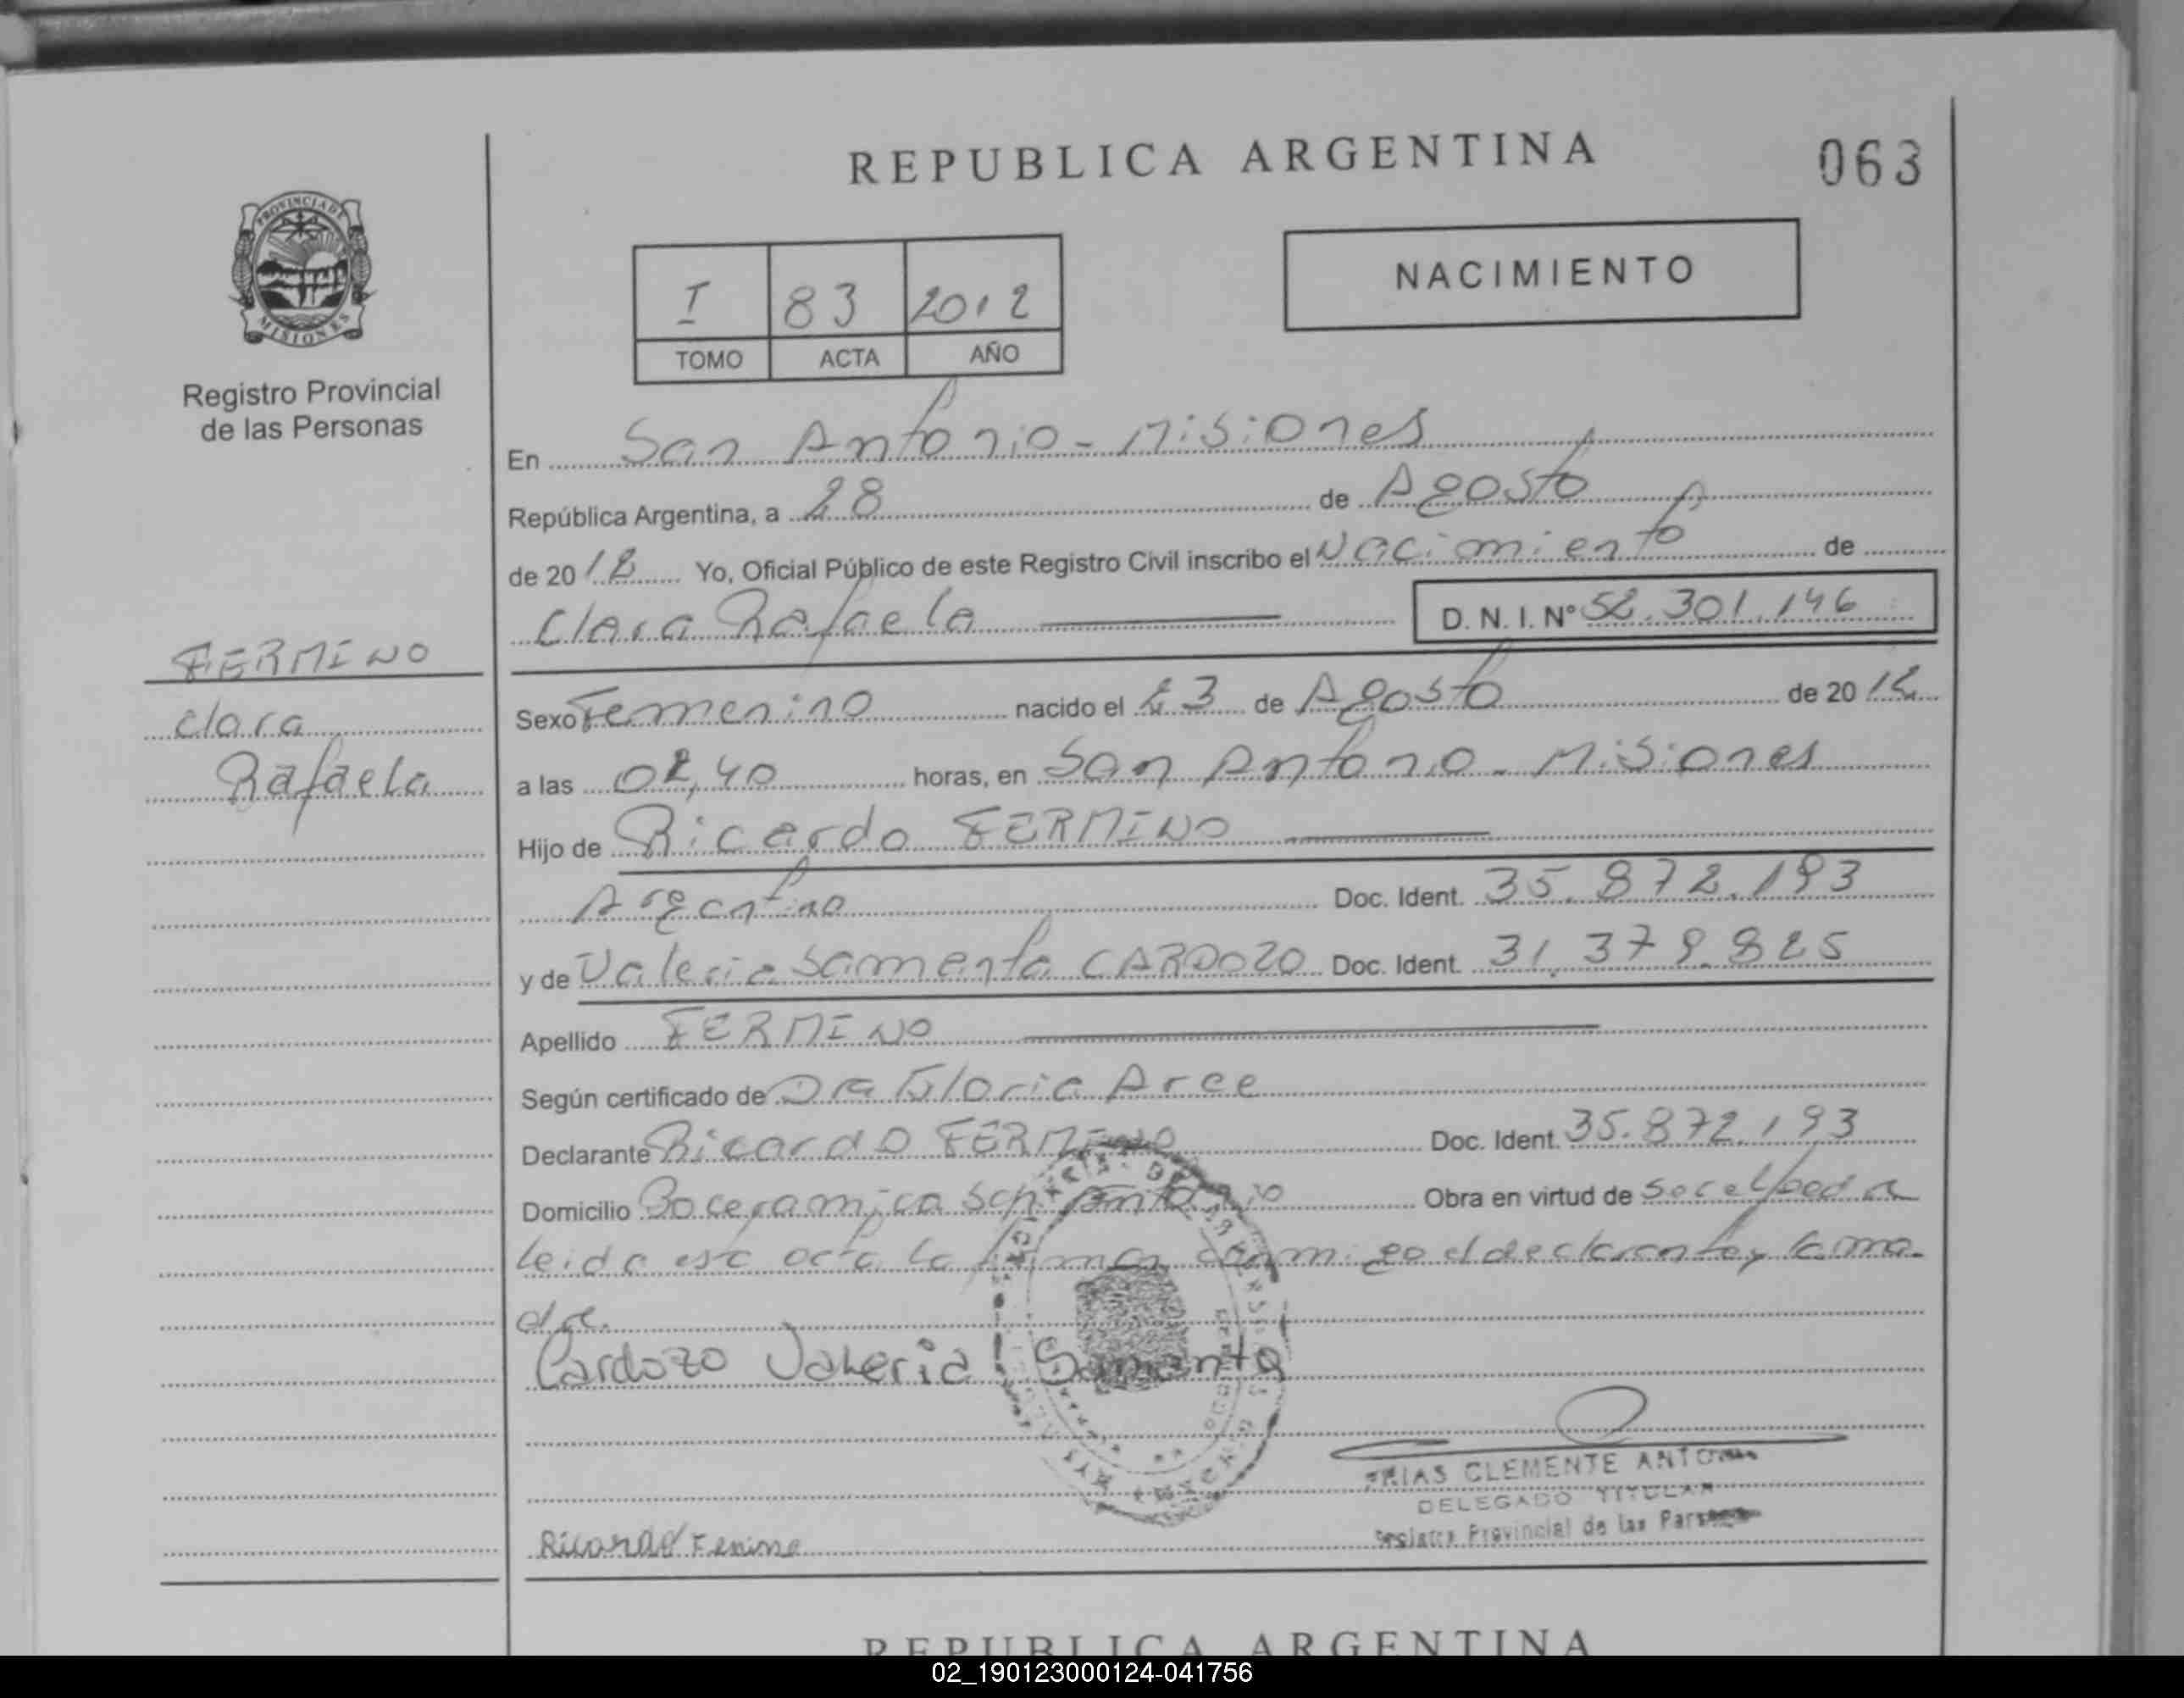 REPUBLICA ARGENTINA
063
PROVINCIA DE
MISIONES
Registro Provincial
de las Personas
I 83 2012
TOMO ACTA AÑO
NACIMIENTO
En San Antonio - Misiones
República Argentina, a 28 de Agosto
de 2012 Yo, Oficial Público de este Registro Civil inscribo el Nacimiento de
Clara Rafaela D. N. I. N° 52.301.146
FERMINO
Clara
Rafaela
Sexo Femenino nacido el 23 de Agosto de 2012
a las 02,40 horas, en San Antonio - Misiones
Hijo de Ricardo FERMINO
Argentino Doc. Ident. 35.872.193
y de Valeria Samanta CARDOZO Doc. Ident. 31.379.825
Apellido FERMINO
Según certificado de Dra Gloria Arce
Declarante Ricardo FERMINO Doc. Ident. 35.872.193
Domicilio Bo ceramica San Antonio Obra en virtud de
leida esta acta la firman conmigo el declarante y la ma
dre.
Cardozo Valeria Samanta
FRIAS CLEMENTE
DELEGADO TITULAR
Provincial de las
Ricardo
REPUBLICA ARGENTINA
02_190123000124-041756